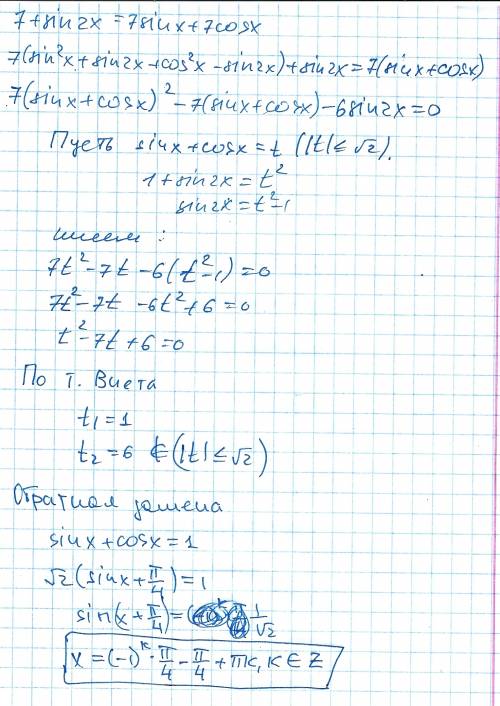 7+sin2x=7sinx+7cosx
7(sin²x+sin2x+cos²x-sin2x)+sin2x=7(sinx+cosx)
7(sinx+cosx)²-7(sinx+cosx)-6sin2x=0
Пусть sinx+cosx=t (|t|≤√2).
1+sin2x=t²
sin2x=t²-1
имеем:
7t²-7t-6(t²-1)=0
7t²-7t-6t²+6=0
t²-7t+6=0
По т. Виета
t₁=1
t₂=6 ∉(|t|≤√2)
Обратная замена
sinx+cosx=1
√2(sinx+π/4)=1
sin(x+π/4)= 1/√2
x=(-1)ᵏ·π/4-π/4+πk, k∈Z